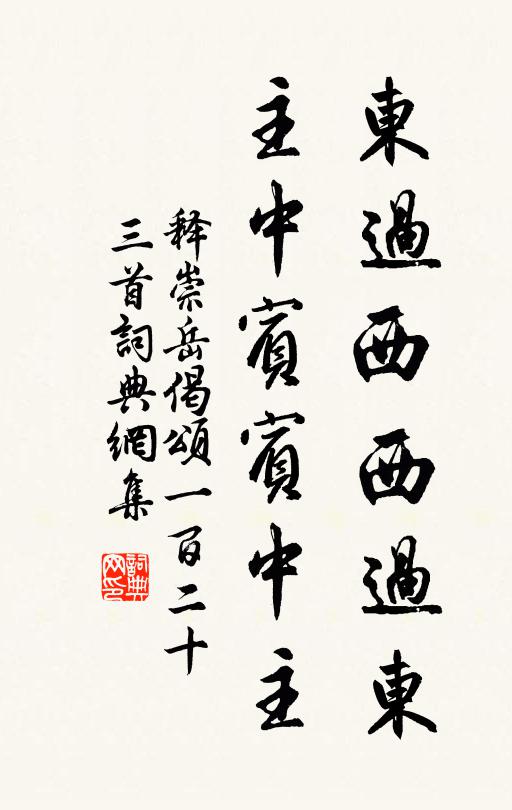 東過西西過東
主中賓賓中主
释崇岳偈頌一百二十
三首詞典網集
詞典網印